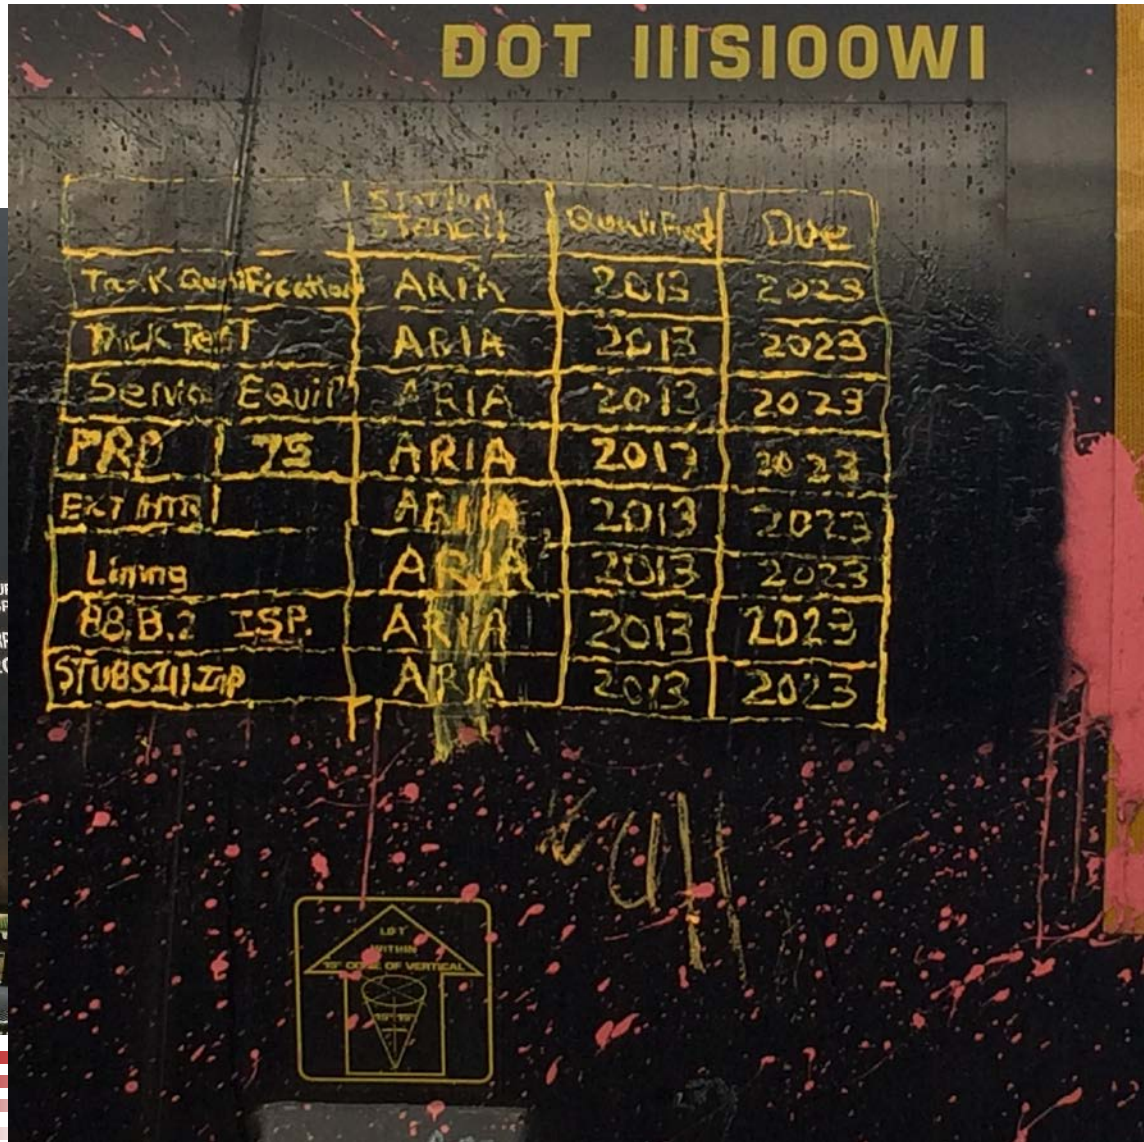 DOT IIISIOOWI
Station Stencil Qualified Due
Tank Qualification ARIA 2013 2023
Thick Test ARIA 2013 2023
Service Equip ARIA 2013 2023
PRD 75 ARIA 2013 2023
EXT HTR ARIA 2013 2023
Lining ARIA 2013 2023
88.B.2 ISP. ARIA 2013 2023
STUBSIll Inp ARIA 2013 2023
WITHIN
CONE OF VERTICAL